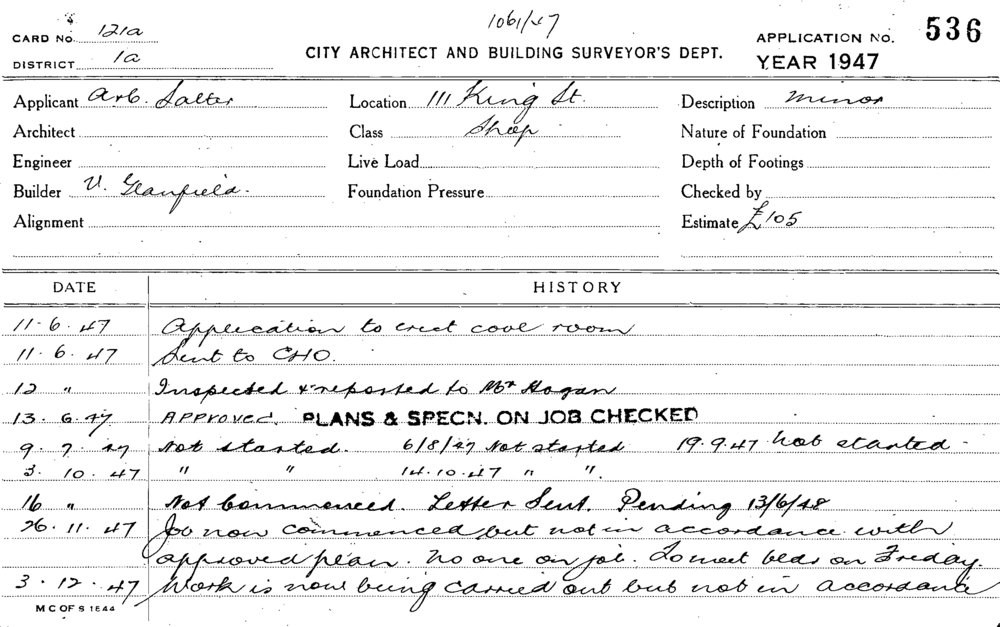 1061/47
CARD No. 121a
DISTRICT 1a
CITY ARCHITECT AND BUILDING SURVEYOR'S DEPT.
APPLICATION NO. 536
YEAR 1947
Applicant Arb. Salter Location 111 King St. Description minor
Architect Class Shop Nature of Foundation
Engineer Live Load Depth of Footings
Builder V. Glanfield. Foundation Pressure Checked by
Alignment Estimate £105
DATE HISTORY
11.6.47 Application to erect cool room
11.6.47 Sent to CHO.
12 " Inspected & reported to Mr Hogan
13.6.47 APPROVED. PLANS & SPECN. ON JOB CHECKED
9.7.47 Not started. 6/8/47 Not started 19.9.47 not started
3.10.47 " " 14.10.47 " "
16 " Not Commenced. Letter Sent. Pending 13/6/48
26.11.47 Job now commenced but not in accordance with
approved plan. No one on job. To meet bldr on Friday.
3.12.47 Work is now being carried out but not in accordance
M C OF S 1644